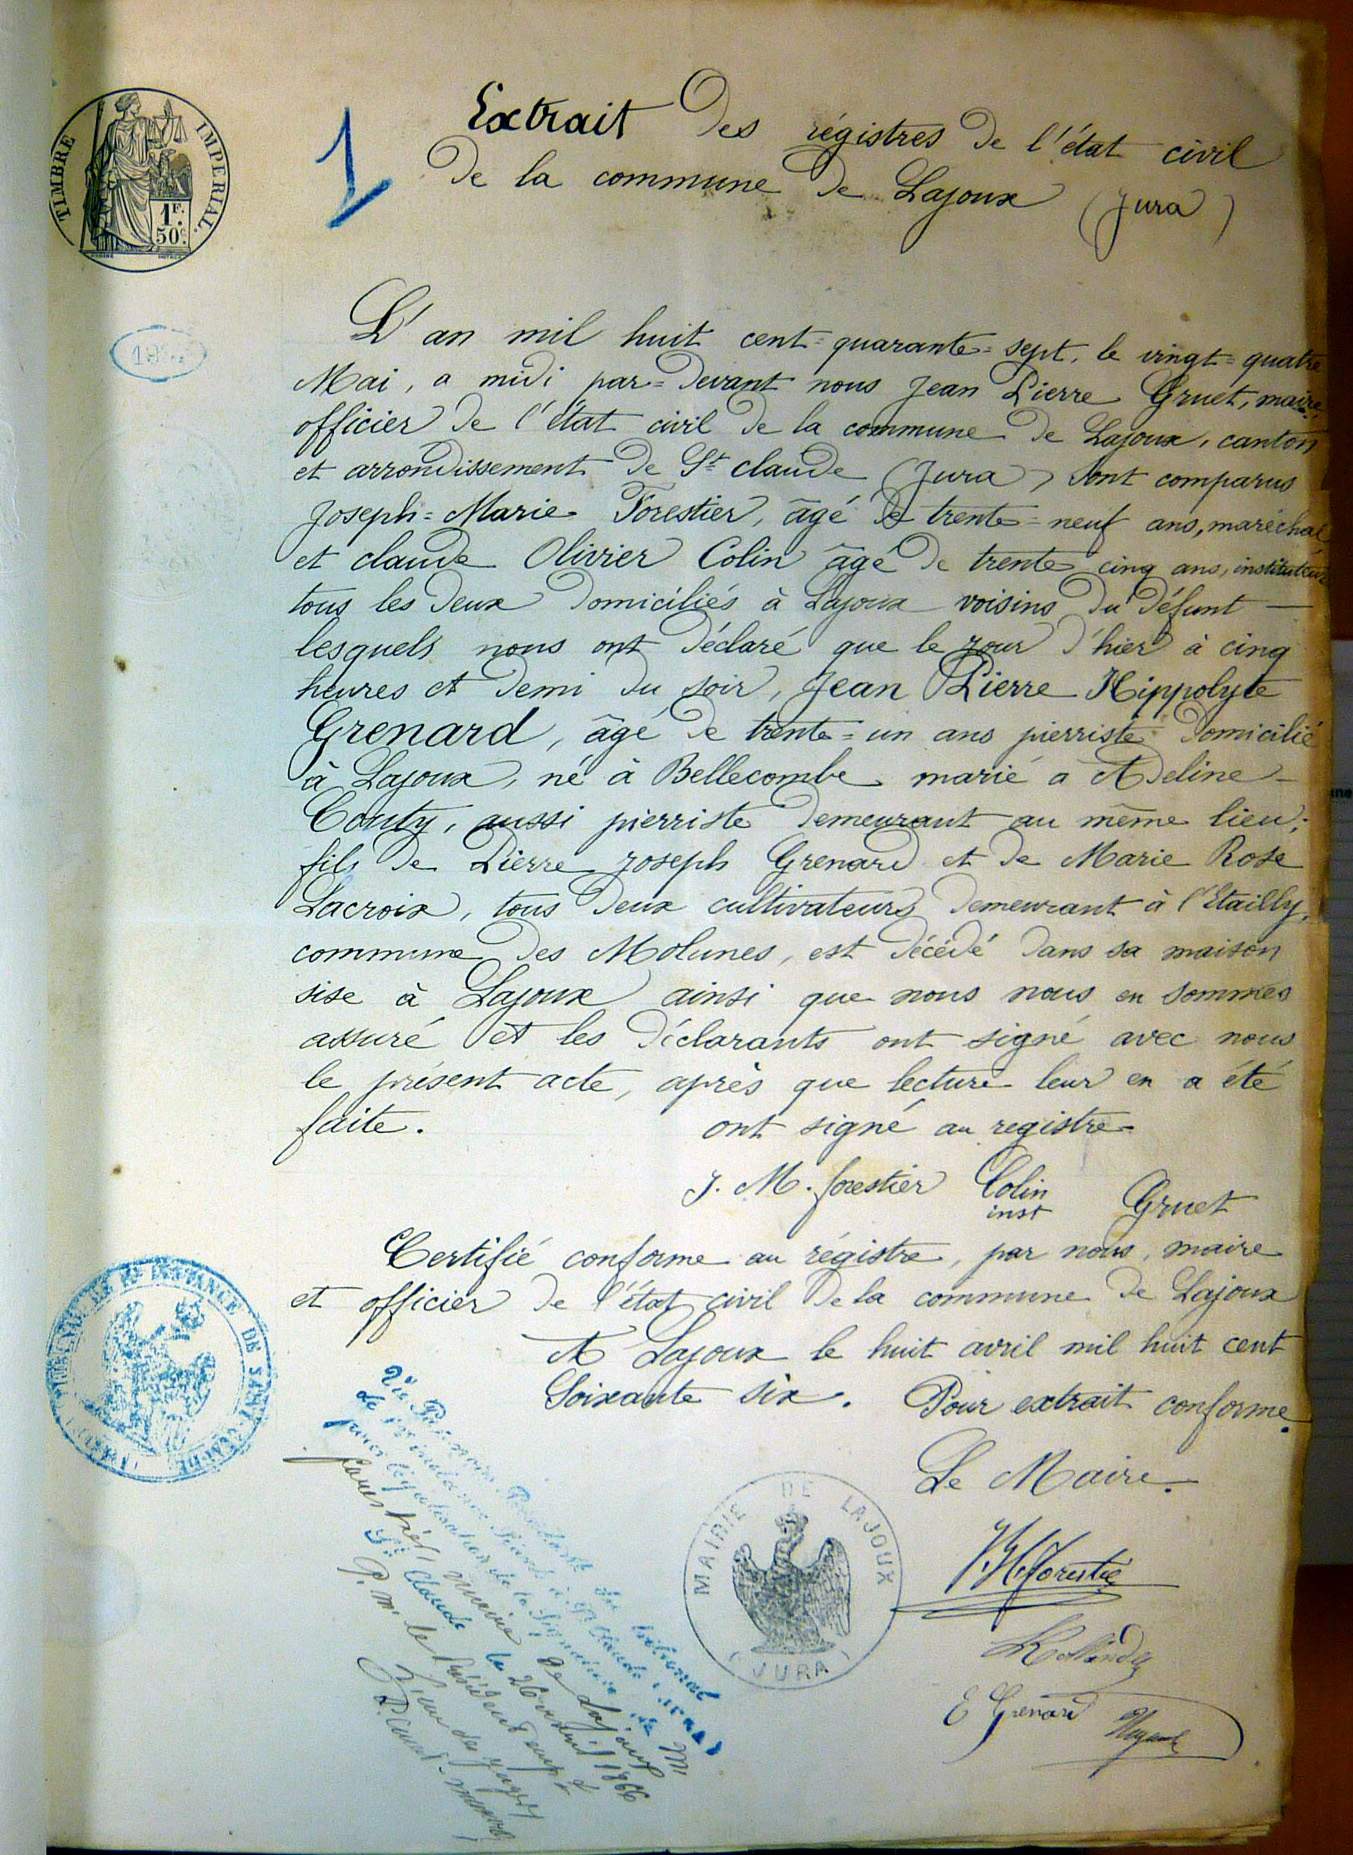 TIMBRE IMPERIAL.
1F.
50c.
1
Extrait des régistres de l'état civil
de la commune de Lajoux (Jura)
L'an mil huit cent=quarante=sept, le vingt=quatre
Mai, a midi par=devant nous Jean Pierre Gruet, maire,
officier de l'état civil de la commune de Lajoux, canton
et arrondissement de St claude (Jura) sont comparus
Joseph=Marie Forestier, âgé de trente=neuf ans, maréchal
et claude Olivier Colin âgé de trente cinq ans, instituteur
tous les deux domiciliés à Lajoux voisins du défunt —
lesquels nous ont déclaré que le jour d'hier à cinq
heures et demi du soir, Jean Pierre Hippolyte
Grenard, âgé de trente=un ans pierriste domicilié
à Lajoux, né à Bellecombe marié a Adeline —
Couty, aussi pierriste demeurant au même lieu;
fils de Pierre Joseph Grenard et de Marie Rose
Lacroix, tous deux cultivateurs demeurant à l'Etailly,
commune des Molunes, est décédé dans sa maison
sise à Lajoux ainsi que nous nous en sommes
assuré et les déclarants ont signé avec nous
le présent acte, après que lecture leur en a été
faite. ont signé au registre
J. M. forestier Colin Gruet
inst
Certifié conforme au régistre, par nous, maire
et officier de l'état civil de la commune de Lajoux
A Lajoux le huit avril mil huit cent
Soixante six. Pour extrait conforme.
Le Maire.
Forestier
E Grenard
MAIRIE DE LAJOUX
(JURA)
TRIBUNAL DE 1re INSTANCE DE SAINT CLAUDE
Vu Par nous Président du tribunal
de 1re instance séant à St Claude (Jura)
pour légalisation de la signature de Mr
forestier, maire de Lajoux
St Claude le 26 avril 1866
P. Mr le Président empé